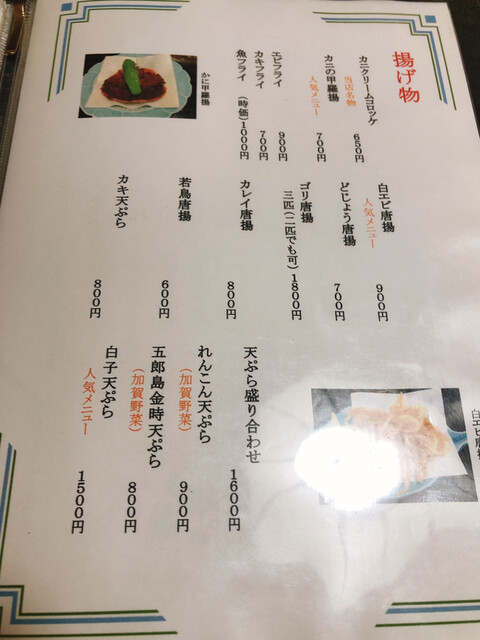 揚げ物
カニクリームコロッケ
当店名物
650円
カニの甲羅揚
人気メニュー
700円
エビフライ
900円
カキフライ
700円
魚フライ (時価)1000円
かに甲羅揚
白エビ唐揚
人気メニュー
900円
どじょう唐揚
700円
ゴリ唐揚
三匹(二匹でも可)1800円
カレイ唐揚
800円
若鳥唐揚
600円
カキ天ぷら
800円
天ぷら盛り合わせ
1600円
れんこん天ぷら
(加賀野菜)
900円
五郎島金時天ぷら
(加賀野菜)
800円
白子天ぷら
人気メニュー
1500円
白エビ唐揚